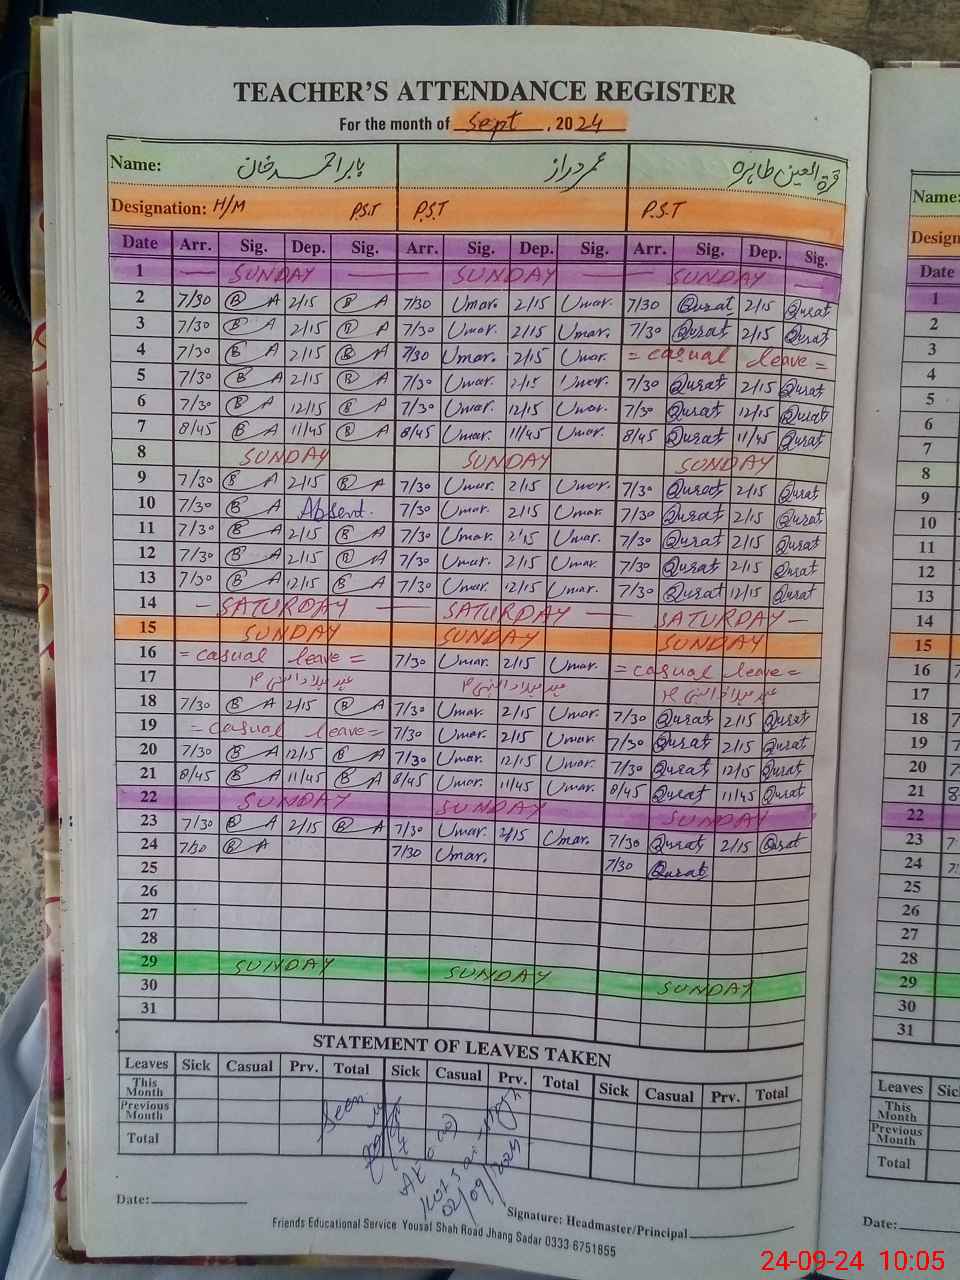 TEACHER'S ATTENDANCE REGISTER
For the month of Sept, 2024
Name: بابر احمد خان عمر دراز قرۃ العین طاہرہ
Designation: H/M P.S.T P.S.T P.S.T
Date Arr. Sig. Dep. Sig. Arr. Sig. Dep. Sig. Arr. Sig. Dep. Sig.
1 — SUNDAY — SUNDAY — SUNDAY —
2 7/30 B A 2/15 B A 7/30 Umar 2/15 Umar. 7/30 Qurat 2/15 Qurat
3 7/30 B A 2/15 B A 7/30 Umar. 2/15 Umar. 7/30 Qurat 2/15 Qurat
4 7/30 B A 2/15 B A 7/30 Umar. 2/15 Umar. = casual leave =
5 7/30 B A 2/15 B A 7/30 Umar. 2/15 Umar. 7/30 Qurat 2/15 Qurat
6 7/30 B A 12/15 B A 7/30 Umar. 12/15 Umar. 7/30 Qurat 12/15 Qurat
7 8/45 B A 11/45 B A 8/45 Umar. 11/45 Umar. 8/45 Qurat 11/45 Qurat
8 SUNDAY SUNDAY SUNDAY
9 7/30 B A 2/15 B A 7/30 Umar. 2/15 Umar 7/30 Qurat 2/15 Qurat
10 7/30 B A Absent. 7/30 Umar. 2/15 Umar. 7/30 Qurat 2/15 Qurat
11 7/30 B A 2/15 B A 7/30 Umar. 2/15 Umar. 7/30 Qurat 2/15 Qurat
12 7/30 B A 2/15 B A 7/30 Umar. 2/15 Umar. 7/30 Qurat 2/15 Qurat
13 7/30 B A 12/15 B A 7/30 Umar. 12/15 Umar. 7/30 Qurat 12/15 Qurat
14 — SATURDAY — SATURDAY — SATURDAY —
15 SUNDAY SUNDAY SUNDAY
16 = casual leave = 7/30 Umar. 2/15 Umar. = casual leave =
17 عید میلاد النبی عید میلاد النبی عید میلاد النبی
18 7/30 B A 2/15 B A 7/30 Umar. 2/15 Umar. 7/30 Qurat 2/15 Qurat
19 = casual leave = 7/30 Umar. 2/15 Umar. 7/30 Qurat 2/15 Qurat
20 7/30 B A 12/15 B A 7/30 Umar. 12/15 Umar. 7/30 Qurat 12/15 Qurat
21 8/45 B A 11/45 B A 8/45 Umar. 11/45 Umar. 8/45 Qurat 11/45 Qurat
22 SUNDAY SUNDAY SUNDAY
23 7/30 B A 2/15 B A 7/30 Umar. 2/15 Umar. 7/30 Qurat 2/15 Qurat
24 7/30 B A 7/30 Umar. 7/30 Qurat
25
26
27
28
29 SUNDAY SUNDAY SUNDAY
30
31
STATEMENT OF LEAVES TAKEN
Leaves Sick Casual Prv. Total Sick Casual Prv. Total Sick Casual Prv. Total
This Month
Previous Month
Total
Seen
02/09/2024
Date:
Signature: Headmaster/Principal
Friends Educational Service Yousaf Shah Road Jhang Sadar 0333-6751855
Name:
Date
1
2
3
4
5
6
7
8
9
10
11
12
13
14
15
16
17
18
19
20
21
22
23
24
25
26
27
28
29
30
31
Leaves
This Month
Previous Month
Total
Date:
24-09-24 10:05